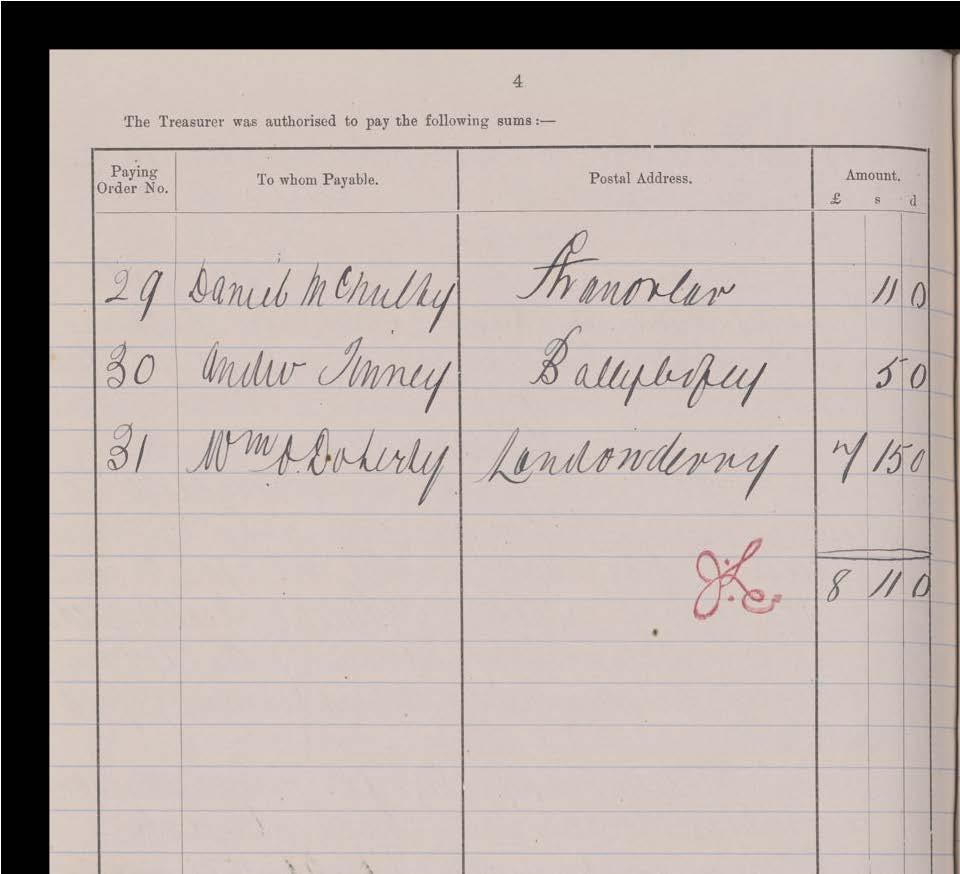 4
The Treasurer was authorised to pay the following sums :—
Paying Order No. To whom Payable. Postal Address. Amount.
£ s d
29 Daniel McNulty Stranorlar 11 0
30 Andrew Tinney Ballybofey 5 0
31 Wm O. Doherty Londonderry 7 15 0
8 11 0